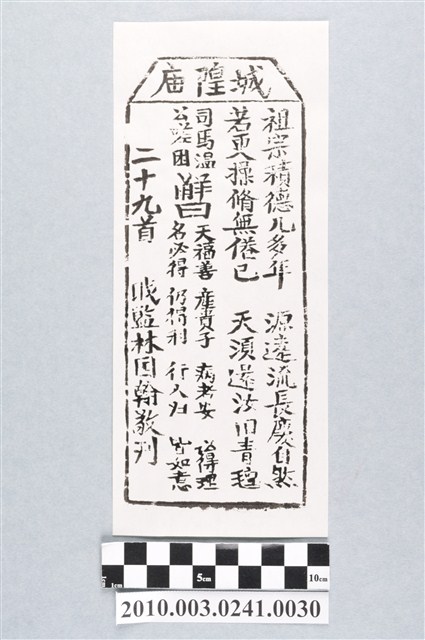 城隍庙
祖宗積德几多年 源遠流長慶自然
若更操脩無倦已 天須還汝旧青毡
司馬温公嗟困
解曰
天福善 產貴子 病者安 訟得理
名必得 仍獲利 行人归 皆如意
二十九首 監林国翰敬刊
1cm 5cm 10cm
2010.003.0241.0030